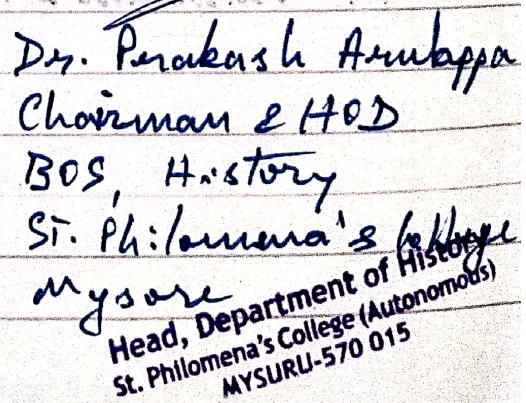 Dr. Prakash Arulappa
Chairman & HOD
BOS, History
St. Philomena's College
Mysore
Head, Department of History
St. Philomena's College (Autonomous)
MYSURU-570 015